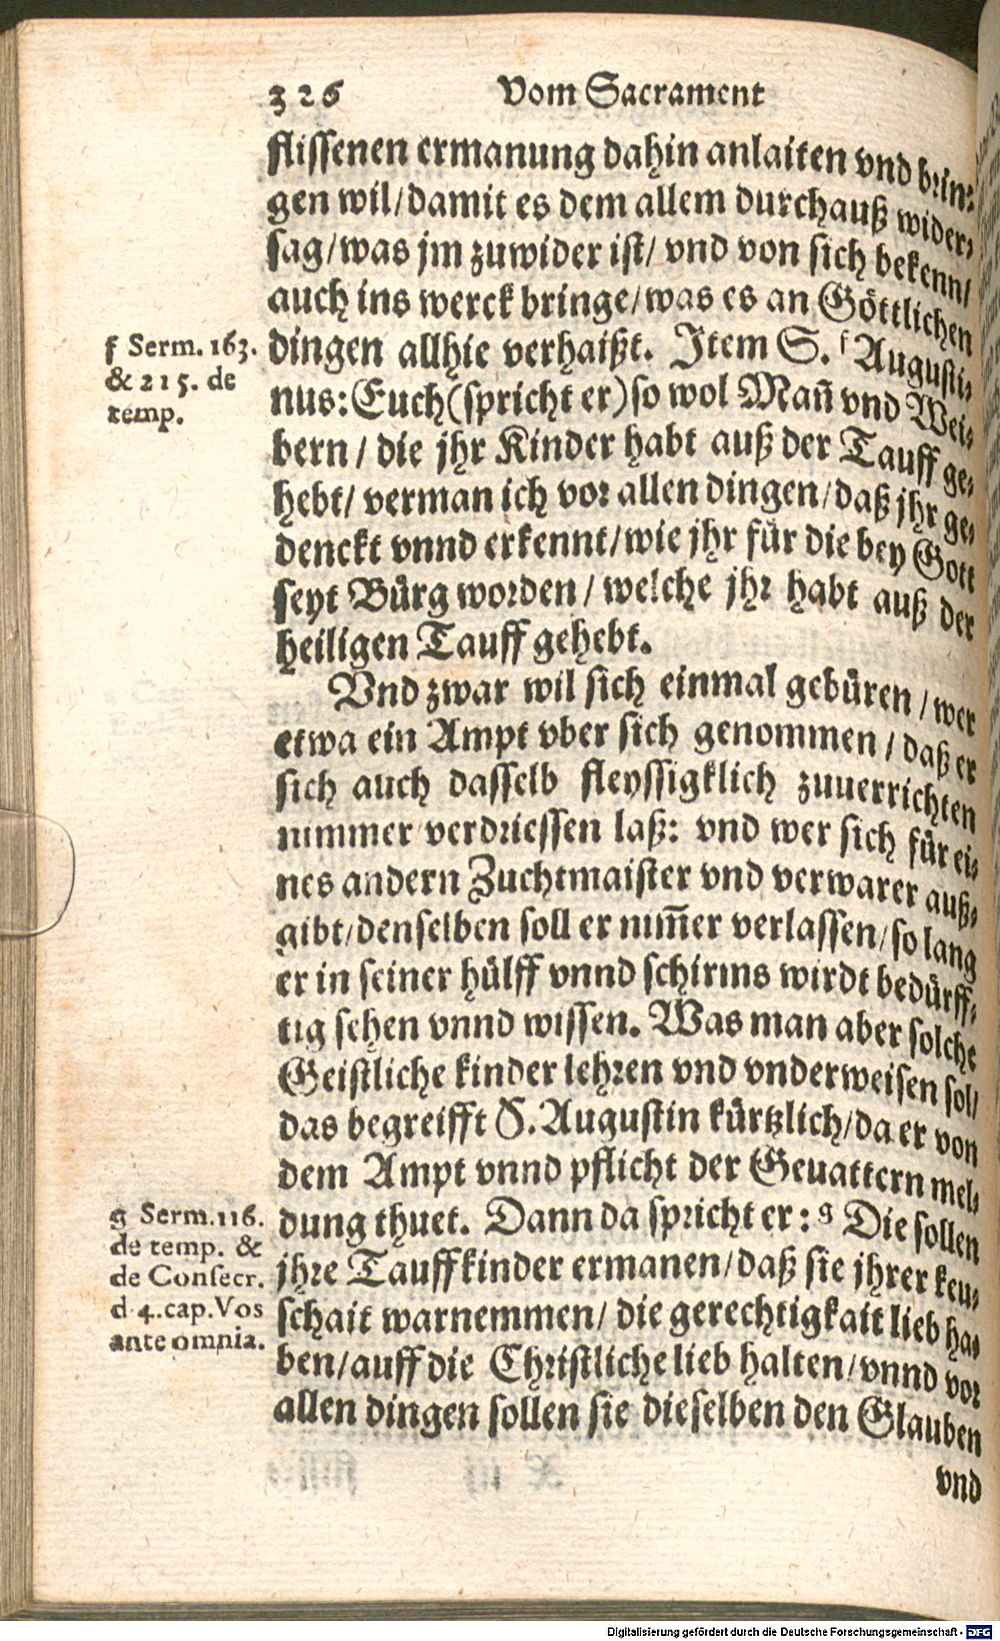 326 Vom Sacrament
flissenen ermanung dahin anlaiten vnd brin⸗
gen wil/damit es dem allem durchauß wider⸗
sag/was jm zuwider ist/ vnd von sich bekenn/
auch ins werck bringe/was es an Göttlichen
dingen allhie verhaißt. Item S. f Augusti⸗
nus: Euch (spricht er) so wol Mañ vnd Wei⸗
bern / die jhr Kinder habt auß der Tauff ge⸗
hebt/ verman ich vor allen dingen/daß jhr ge⸗
denckt vnnd erkennt/wie jhr für die bey Gott
seyt Bürg worden / welche jhr habt auß der
heiligen Tauff gehebt.
f Serm. 163.
& 215. de
temp.
Vnd zwar wil sich einmal gebüren / wer
etwa ein Ampt vber sich genommen / daß er
sich auch dasselb fleyssigklich zuuerrichten
nimmer verdriessen laß: vnd wer sich für ei⸗
nes andern Zuchtmaister vnd verwarer auß⸗
gibt/denselben soll er nim̃er verlassen/so lang
er in seiner hülff vnnd schirms wirdt bedürff⸗
tig sehen vnnd wissen. Was man aber solche
Geistliche kinder lehren vnd vnderweisen sol/
das begreifft S. Augustin kürtzlich/da er von
dem Ampt vnnd pflicht der Geuattern mel⸗
dung thuet. Dann da spricht er: g Die sollen
jhre Tauffkinder ermanen/daß sie jhrer keu⸗
schait warnemmen/ die gerechtigkait lieb ha⸗
ben/auff die Christliche lieb halten/vnnd vor
allen dingen sollen sie dieselben den Glauben
vnd
g Serm. 116.
de temp. &
de Consecr.
d 4. cap. Vos
ante omnia.
Digitalisierung gefördert durch die Deutsche Forschungsgemeinschaft - DFG